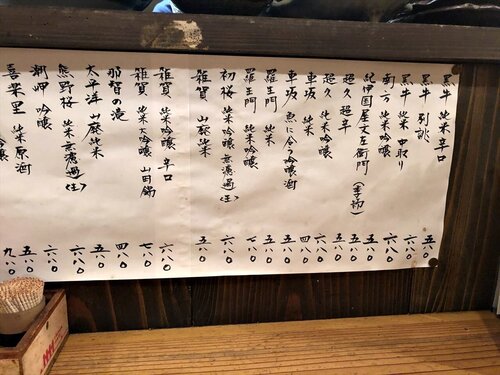 黒牛 純米 辛口 五八〇
黒牛 別誂 六八〇
黒牛 純米 中取り 六八〇
南方 純米吟醸 五八〇
紀伊国屋文左衛門 五八〇
超久 超辛 五八〇
超久 純米吟醸 六八〇
車坂 純米 四八〇
車坂 魚に合う吟醸酒 五八〇
羅生門 純米 五八〇
羅生門 純米吟醸 六八〇
初桜 純米吟醸 無濾過(生) 六八〇
雑賀 山廃純米 五八〇
雑賀 純米吟醸 辛口 六八〇
雑賀 純米大吟醸 山田錦 七八〇
那智の滝 四八〇
太平洋 山廃純米 五八〇
熊野桜 純米 無濾過(生) 六八〇
潮岬 吟醸 六八〇
喜楽里 純米原酒 五八〇
吟醸 九八〇